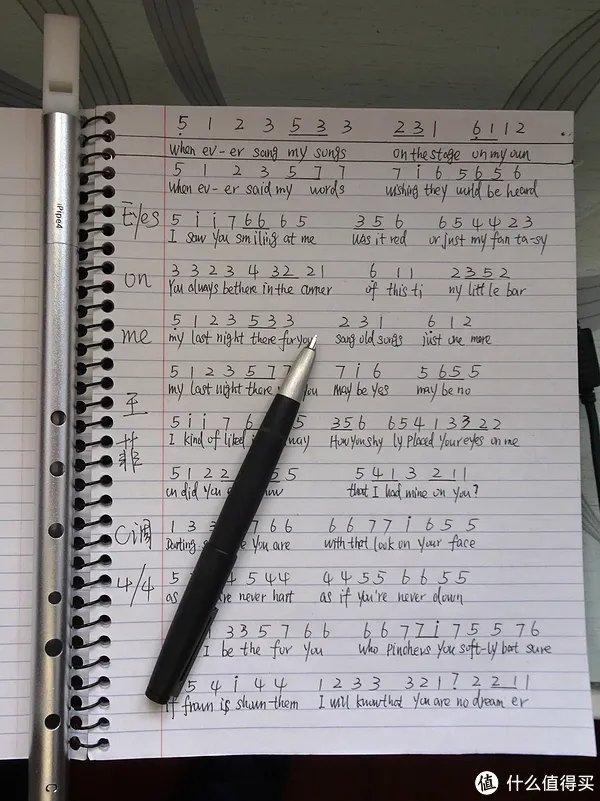 5 1 2 3 5 3 3 2 3 1 6 1 1 2
when ev-er sang my songs on the stage on my own
5 1 2 3 5 7 7 7 i 6 5 6 5 6
when ev-er said my words wishing they would be heard
Eyes
5 i i 7 6 6 6 5 3 5 6 6 5 4 4 2 3
I saw you smiling at me was it red or just my fan ta-sy
on
3 3 2 3 4 3 2 2 1 6 1 1 2 3 5 2
You always bethere in the corner of this ti ny little bar
me
5 1 2 3 5 3 3 2 3 1 6 1 2
my last night there for you sang old songs just one more
5 1 2 3 5 7 7 i 6 5 6 5 5
my last night there you maybe yes maybe no
王
菲
5 i i 7 6 5 3 5 6 6 5 4 1 3 3 2 2
I kind of liked way How you shy ly placed your eyes on me
5 1 2 2 5 5 4 1 3 2 1 1
on did you that I had mine on you?
C调
1 3 3 7 6 6 6 6 7 7 i 6 5 5
Darting you are with that look on your face
4/4
5 4 5 4 4 4 4 5 5 6 6 5 5
as never hurt as if you're never down
1 3 3 5 7 6 6 6 6 7 7 i 7 5 5 7 6
I be the for you who pinchers you soft-ly bat sure
5 4 i 4 4 1 2 3 3 3 2 1 7 2 2 1 1
if frown is shown them I will know that you are no dream er
iPipe4
C
值 什么值得买